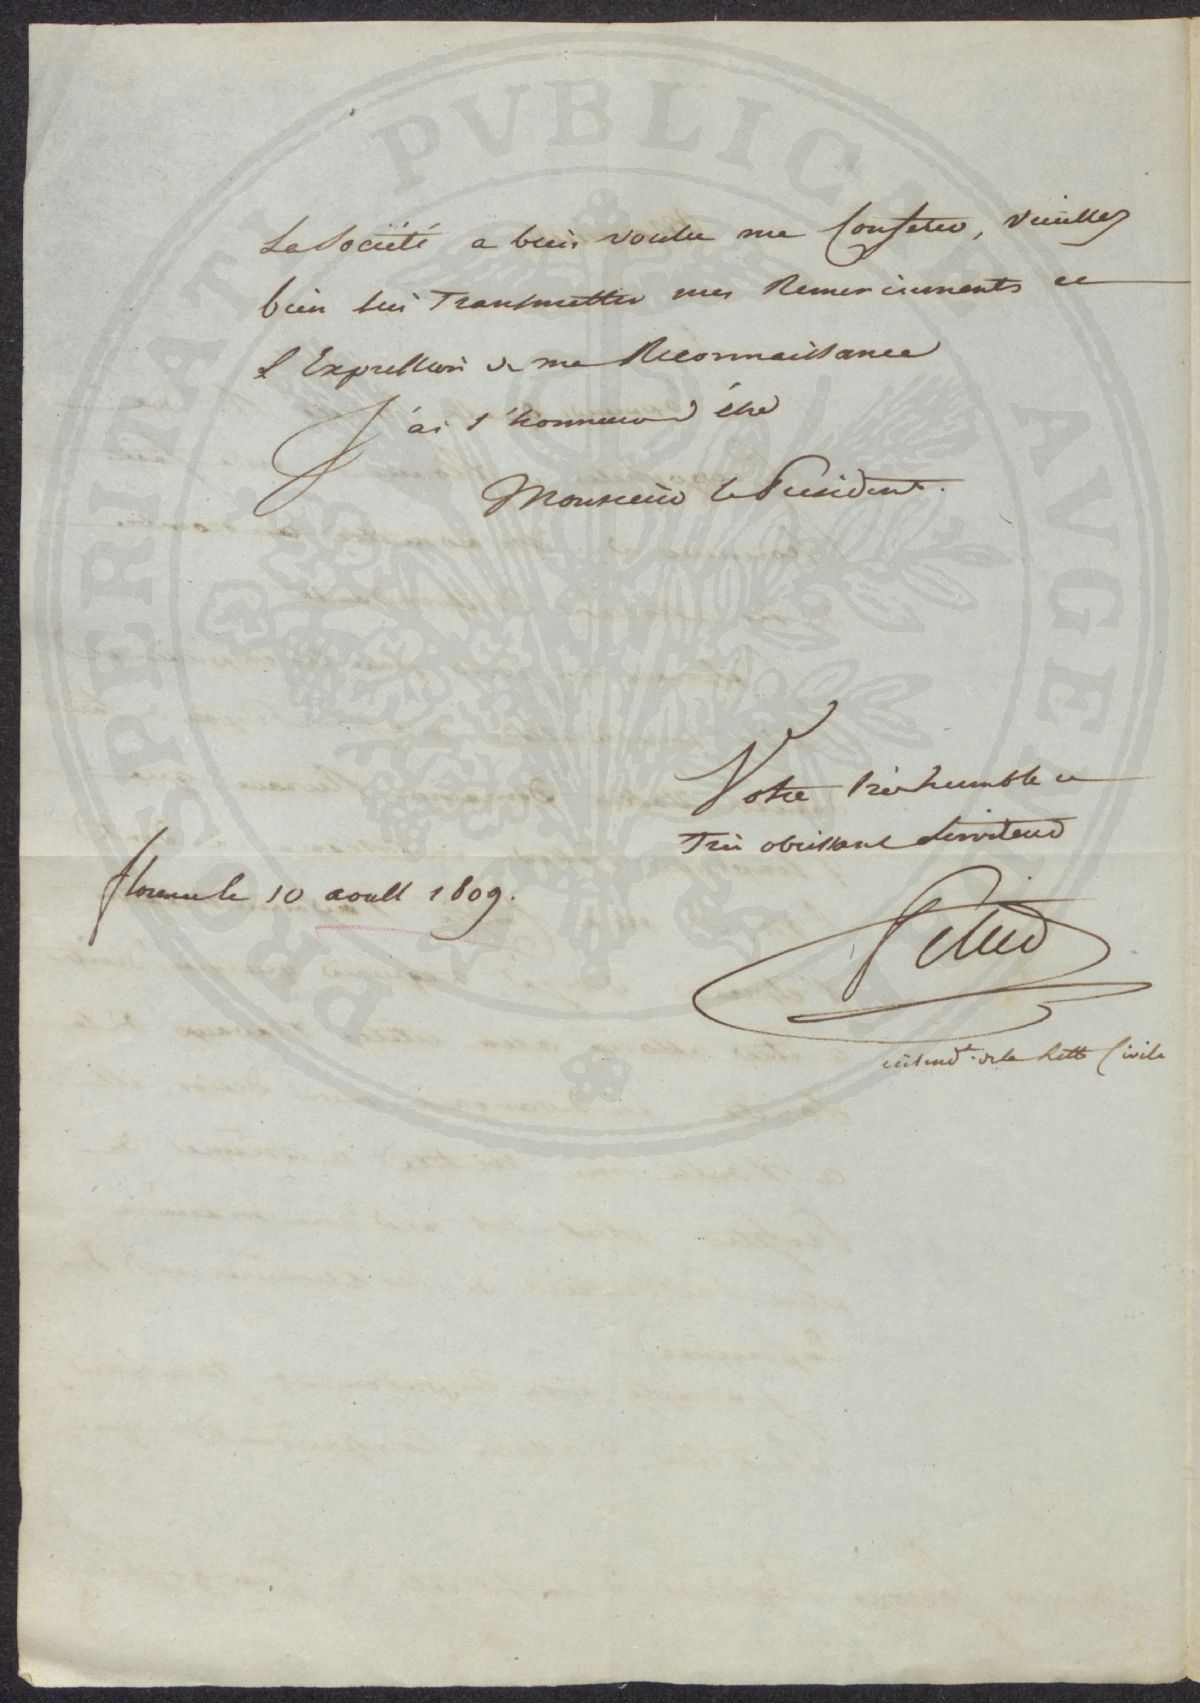 PROSPERITATI PVBLICAE AVGENDAE
La Société a bien voulu me Conferer, Veuillez
bien lui Transmettre mes Remerciments et
l'Expression de ma Reconnaissance
J'ai l'honneur d'être
Monsieur le President.
Votre très humble et
Très obéissant Serviteur
florence le 10 aoust 1809.
intend.t de la liste Civile